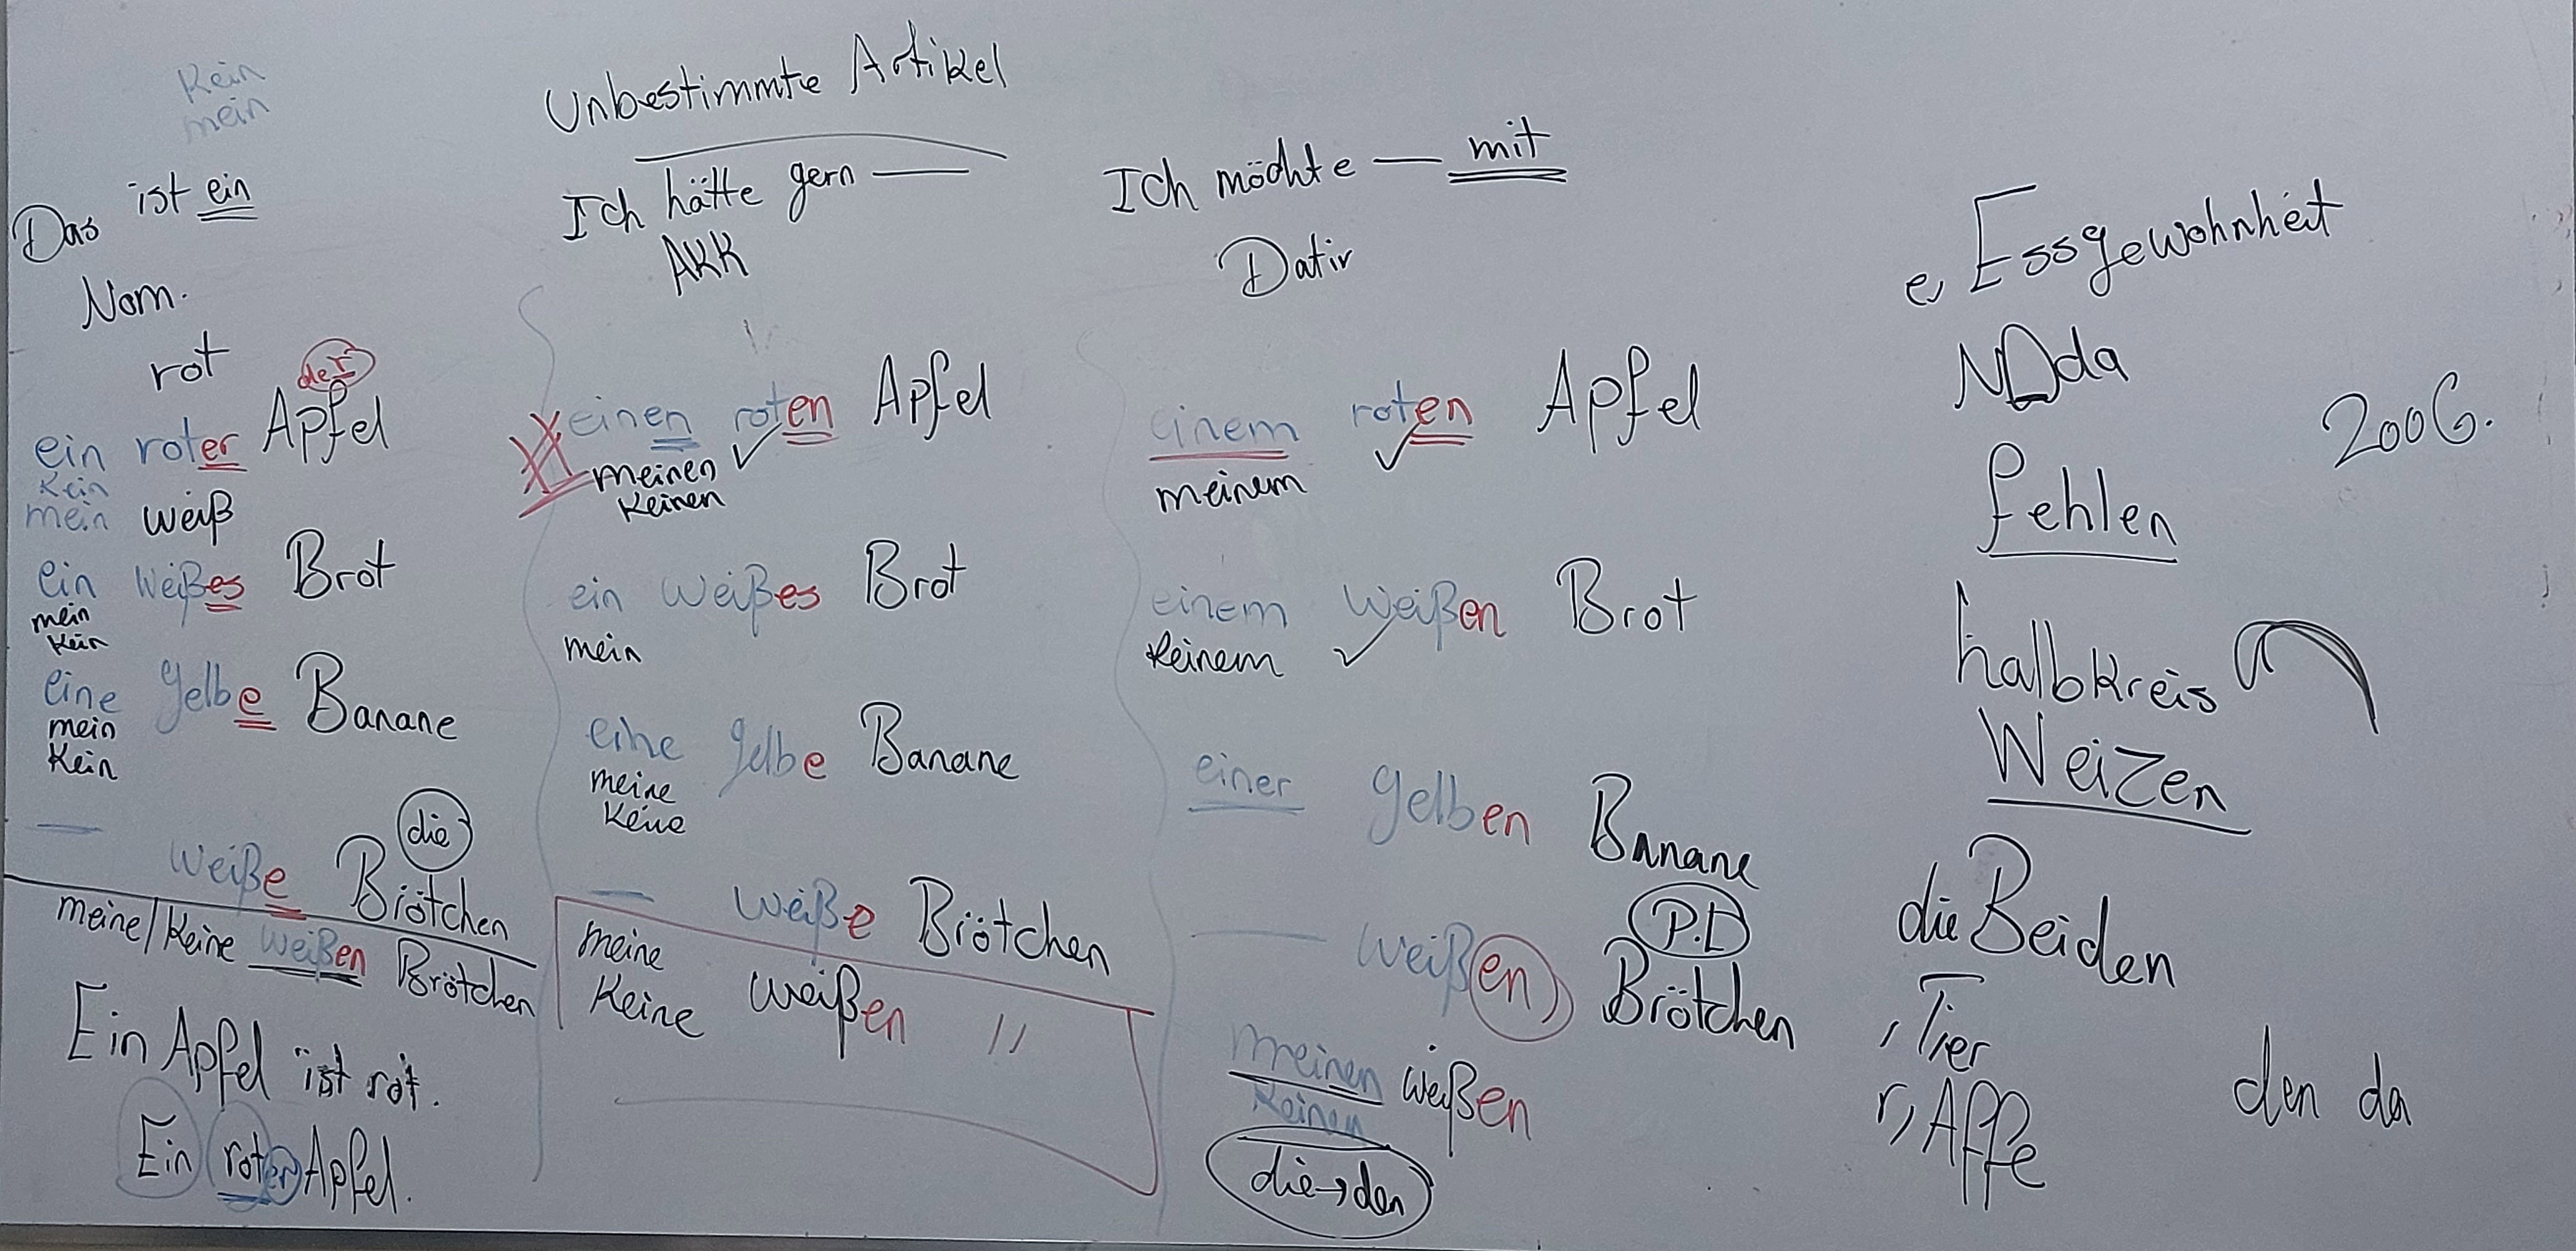 Kein
mein
Unbestimmte Artikel
Das ist ein
Nom.
rot
der
ein roter Apfel
Kein
mein weiß
ein weißes Brot
mein
kein
eine gelbe Banane
mein
Kein
die
— weiße Brötchen
meine/Keine weißen Brötchen
Ein Apfel ist rot.
Ein roter Apfel.
Ich hätte gern —
AKK
einen roten Apfel
meinen
Keinen
ein weißes Brot
mein
eine gelbe Banane
meine
Keine
— weiße Brötchen
meine
Keine weißen "
Ich möchte — mit
Dativ
einem roten Apfel
meinem
einem weißen Brot
Keinem
einer gelben Banane
— weißen Brötchen
meinen weißen
Keinen
die→den
e, Essgewohnheit
da
fehlen
halbkreis
Weizen
die Beiden
Tier
r, Affe
200G.
den da